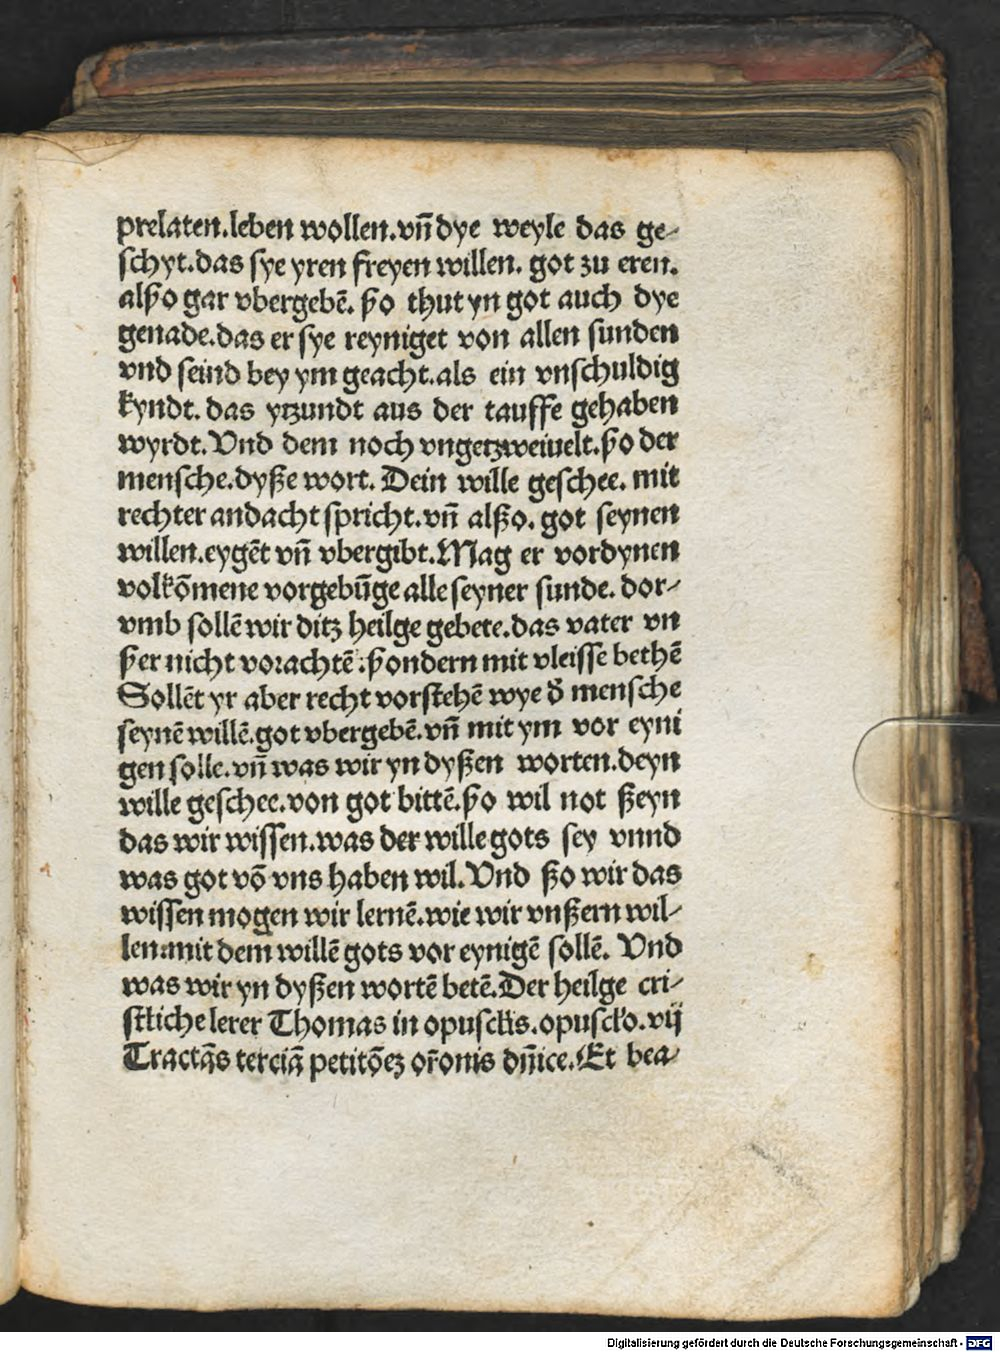 prelaten.leben wollen.vn̄ dye weyle das ge-
schyt.das sye yren freyen willen. got zu eren.
alßo gar vbergebē. ßo thut yn got auch dye
genade.das er sye reyniget von allen sunden
vnd seind bey ym geacht.als ein vnschuldig
kyndt. das ytzundt aus der tauffe gehaben
wyrdt. Vnd dem noch vngetzweiuelt.ßo der
mensche.dyße wort. Dein wille geschee. mit
rechter andacht spricht.vn̄ alßo. got seynen
willen.eygēt vn̄ vbergibt.Mag er vordynen
volkōmene vorgebūge alle seyner sunde. dor-
vmb sollē wir ditz heilge gebete.das vater vn
ßer nicht vorachtē.ßondern mit vleisse bethē
Sollēt yr aber recht vorstehē wye d̄ mensche
seynē willē.got vbergebē.vn̄ mit ym vor eyni
gen solle.vn̄ was wir yn dyßen worten.deyn
wille geschee.von got bittē.ßo wil not ßeyn
das wir wissen.was der wille gots sey vnnd
was got vō vns haben wil.Vnd ßo wir das
wissen mogen wir lernē.wie wir vnßern wil-
len:mit dem willē gots vor eynigē sollē. Vnd
was wir yn dyßen wortē betē.Der heilge cri-
stliche lerer Thomas in opusckls.opusclo.vij
Tractās terciā petitōez or̄onis dn̄ice.Et bea-
Digitalisierung gefördert durch die Deutsche Forschungsgemeinschaft - DFG